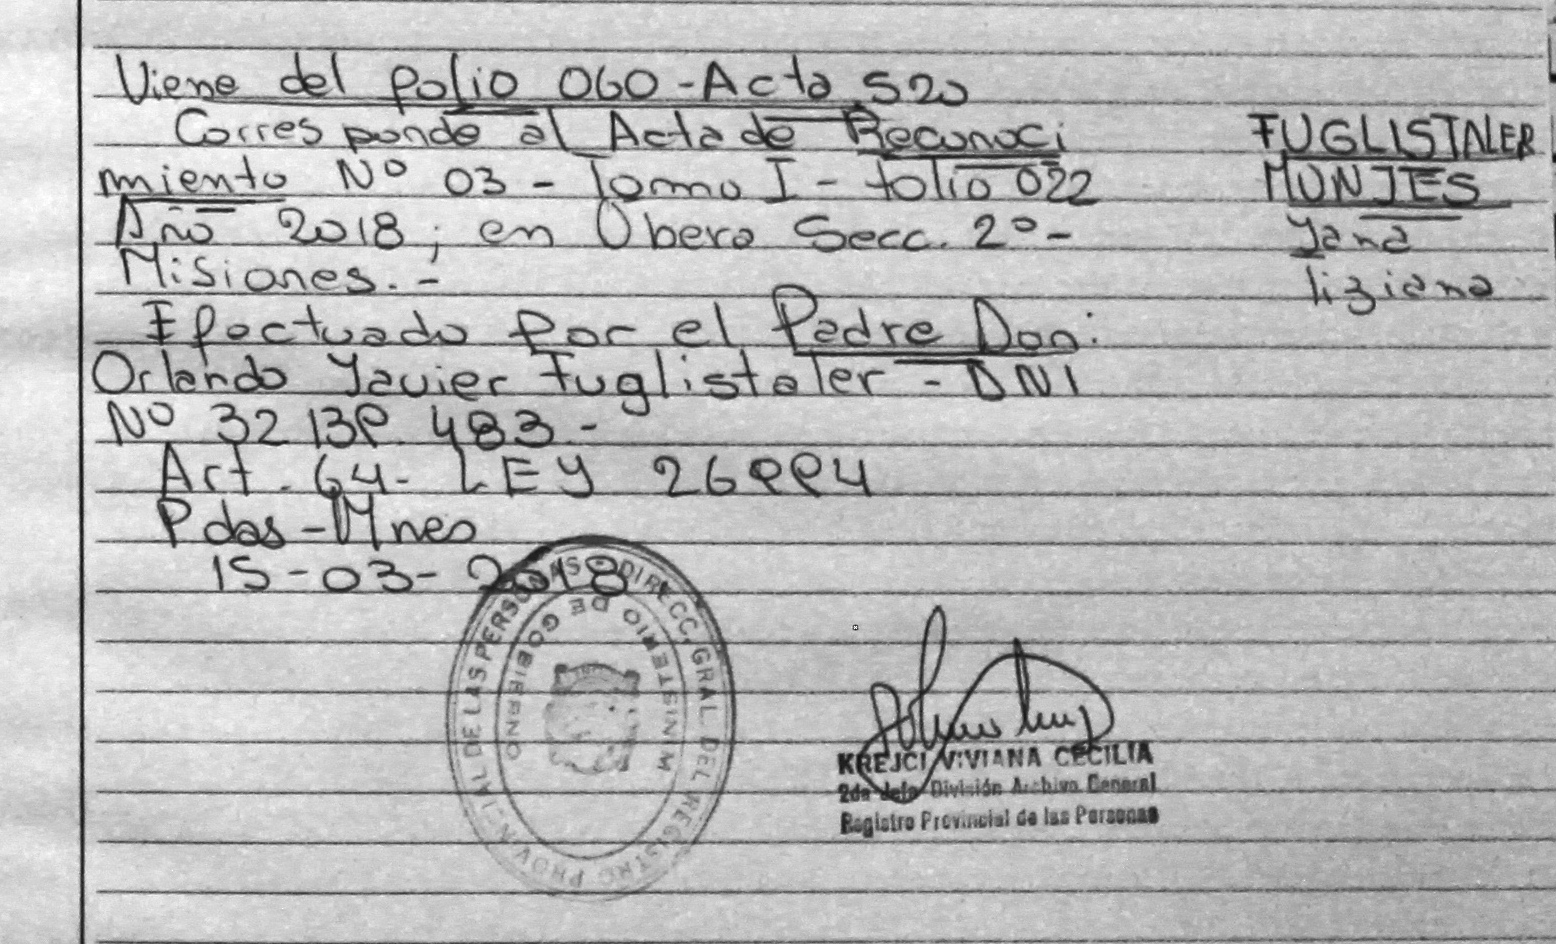 Viene del folio 060 - Acta 520
Corresponde al Acta de Reconoci
miento Nº 03 - Tomo I - folio 022
Año 2018, en Obera Secc. 2º -
Misiones. -
Efectuado por el Padre Don:
Orlando Javier Fuglistaler - DNI
Nº 32 139 483 -
Art. 64 - LEY 26994
Pdas - Mnes
15-03-2018
FUGLISTALER
MUNJES
Yana
liziana
DIRECC. GRAL. DEL REGISTRO PROVINCIAL DE LAS PERSONAS
MINISTERIO DE GOBIERNO
KREJCI VIVIANA CECILIA
2da Jefa División Archivo General
Registro Provincial de las Personas